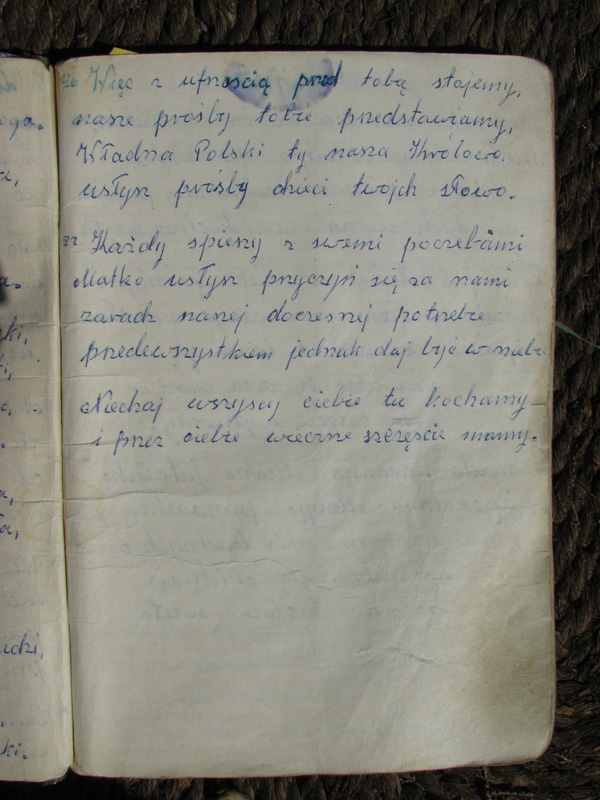 26 Więc z ufnością przed tobą stajemy,
nasze prośby tobie przedstawiamy,
Władna Polski ty nasza Królowo.
usłysz prośby dzieci twojch słowo.
27 Każdy spieszy z swemi poczebami
Matko usłysz przyczyń się za nami
zaradz naszej doczesnej potrzebie
przedewszystkiem jednak daj być w niebie
Niechaj wszyscy ciebie tu kochamy
i przez ciebie wieczne szczęście mamy.